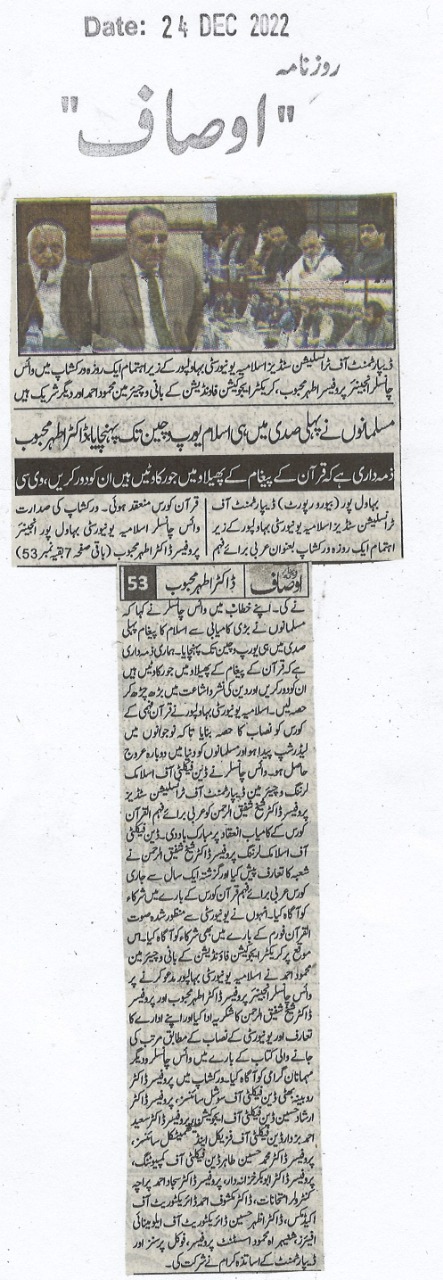 Date: 24 DEC 2022
روزنامہ
"اوصاف"
ڈیپارٹمنٹ آف ٹرانسلیشن سٹڈیز اسلامیہ یونیورسٹی بہاولپور کے زیر اہتمام ایک روزہ ورکشاپ میں وائس
چانسلر انجینئر پروفیسر اطہر محبوب، کریکٹر ایجوکیشن فاؤنڈیشن کے بانی و چیئرمین محمود احمد اور دیگر شریک ہیں
مسلمانوں نے پہلی صدی میں ہی اسلام یورپ و چین تک پہنچایا، ڈاکٹر اطہر محبوب
ذمہ داری ہے کہ قرآن کے پیغام کے پھیلاو میں جو رکاوٹیں ہیں ان کو دور کریں، وی سی
بہاول پور (بیورو رپورٹ) ڈیپارٹمنٹ آف
ٹرانسلیشن سٹڈیز اسلامیہ یونیورسٹی بہاولپور کے زیر
اہتمام ایک روزہ ورکشاپ بعنوان عربی برائے فہم
قرآن کورس منعقد ہوئی۔ ورکشاپ کی صدارت
وائس چانسلر اسلامیہ یونیورسٹی بہاول پور انجینئر
پروفیسر ڈاکٹر اطہر محبوب (باقی صفحہ 7 بقیہ نمبر 53)
روزنامہ اوصاف ڈاکٹر اطہر محبوب 53
نے کی۔ اپنے خطاب میں وائس چانسلر نے کہا کہ
مسلمانوں نے بڑی کامیابی سے اسلام کا پیغام پہلی
صدی میں ہی یورپ و چین تک پہنچایا۔ ہماری ذمہ داری
ہے کہ قرآن کے پیغام کے پھیلاو میں جو رکاوٹیں ہیں
ان کو دور کریں اور دین کی نشر و اشاعت میں بڑھ چڑھ کر
حصہ لیں۔ اسلامیہ یونیورسٹی بہاولپور نے قرآن فہمی کے
کورس کو نصاب کا حصہ بنایا تاکہ نوجوانوں میں
لیڈر شپ پیدا ہو اور مسلمانوں کو دنیا میں دوبارہ عروج
حاصل ہو۔ وائس چانسلر نے ڈین فیکلٹی آف اسلامک
لرننگ و چیئرمین ڈیپارٹمنٹ آف ٹرانسلیشن سٹڈیز
پروفیسر ڈاکٹر شیخ شفیق الرحمن کو عربی برائے فہم القرآن
کورس کے کامیاب انعقاد پر مبارک باد دی۔ ڈین فیکلٹی
آف اسلامک لرننگ پروفیسر ڈاکٹر شیخ شفیق الرحمن نے
شعبہ کا تعارف پیش کیا اور گزشتہ ایک سال سے جاری
کورس عربی برائے فہم قرآن کورس کے بارے میں شرکاء
کو آگاہ کیا۔ انہوں نے یونیورسٹی سے منظور شدہ صوت
القرآن فورم کے بارے میں بھی شرکاء کو آگاہ کیا۔ اس
موقع پر کریکٹر ایجوکیشن فاؤنڈیشن کے بانی و چیئرمین
محمود احمد نے اسلامیہ یونیورسٹی بہاولپور مدعو کرنے پر
وائس چانسلر انجینئر پروفیسر ڈاکٹر اطہر محبوب اور پروفیسر
ڈاکٹر شیخ شفیق الرحمن کا شکریہ ادا کیا اور اپنے ادارے کا
تعارف اور یونیورسٹی کے نصاب کے مطابق مرتب کی
جانے والی کتاب کے بارے میں وائس چانسلر و دیگر
مہمانان گرامی کو آگاہ کیا۔ ورکشاپ میں پروفیسر ڈاکٹر
روبینہ بھٹی ڈین فیکلٹی آف سوشل سائنسز، پروفیسر ڈاکٹر
ارشاد حسین ڈین فیکلٹی آف ایجوکیشن، پروفیسر ڈاکٹر سعید
احمد بزدار ڈین فیکلٹی آف فزیکل اینڈ میتھمیٹیکل سائنسز،
پروفیسر ڈاکٹر محمد حسین طاہر ڈین فیکلٹی آف کمپیوٹنگ،
پروفیسر ڈاکٹر ابوبکر خزانہ دار، پروفیسر ڈاکٹر سجاد احمد پراچہ
کنٹرولر امتحانات، ڈاکٹر مکشوف احمد ڈائریکٹوریٹ آف
اکیڈمکس، ڈاکٹر اظہر حسین ڈائریکٹوریٹ آف ایلومینائی
افیئرز، محمود اسسٹنٹ پروفیسر، فوکل پرسنز اور
ڈیپارٹمنٹ کے اساتذہ کرام نے شرکت کی۔